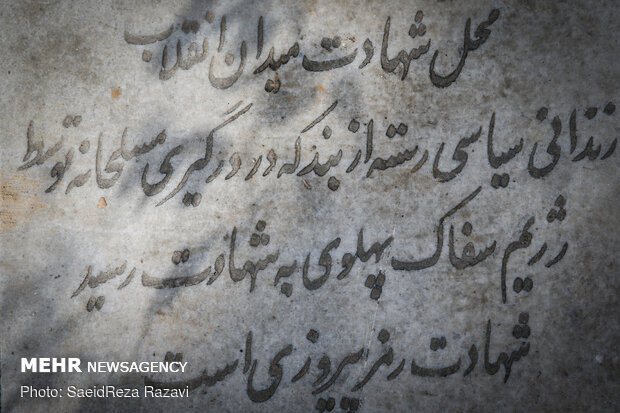 محل شهادت میدان انقلاب
زندانی سیاسی رسته از بند که در درگیری مسلحانه توسط
رژیم سفاک پهلوی به شهادت رسید
شهادت رمز پیروزی است
MEHR NEWSAGENCY
Photo: SaeidReza Razavi